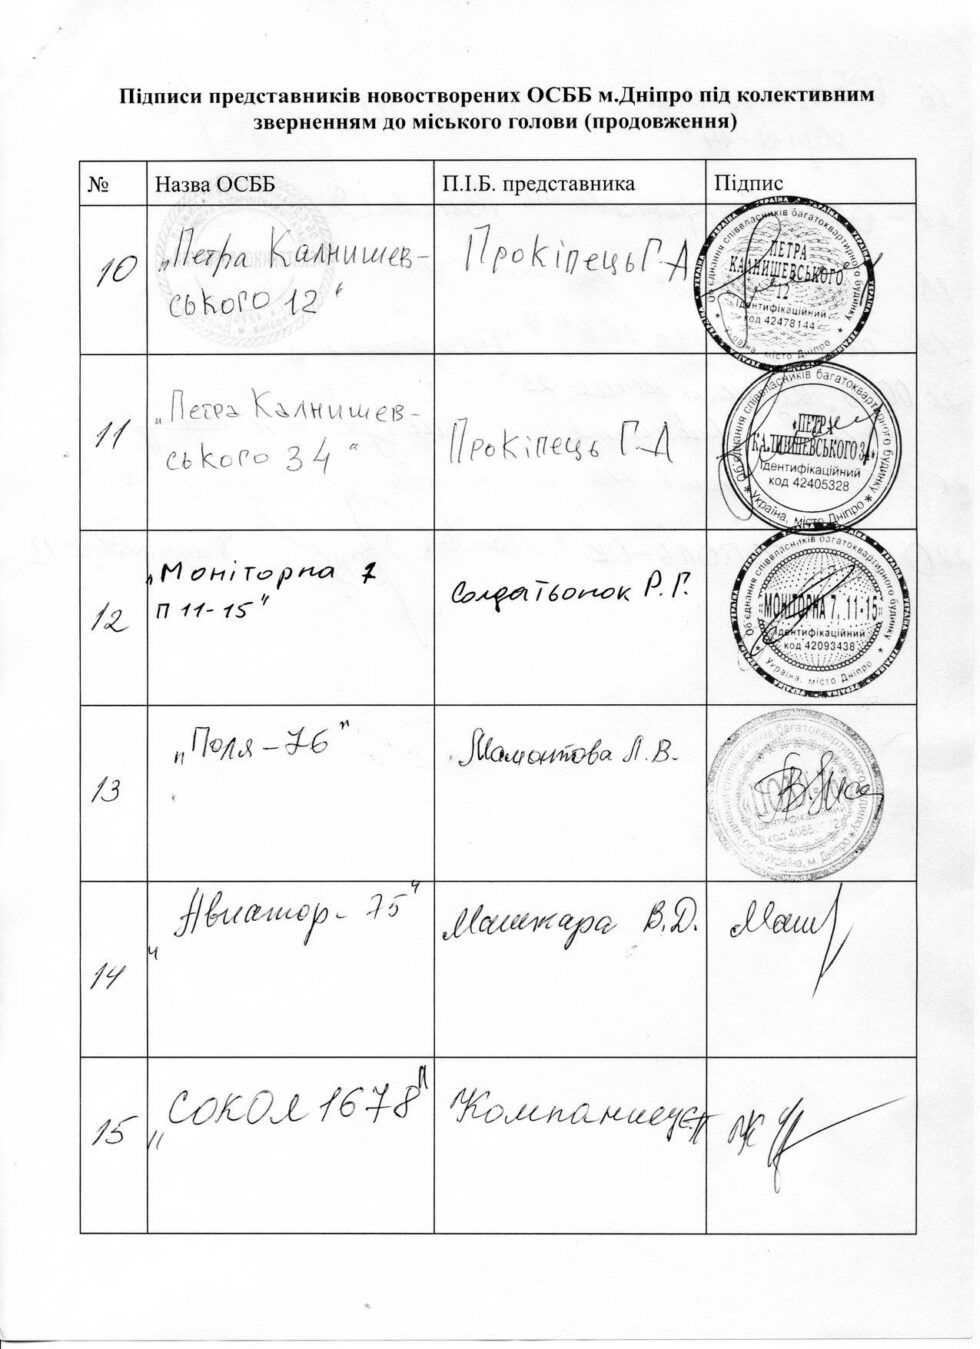 Підписи представників новостворених ОСББ м.Дніпро під колективним
зверненням до міського голови (продовження)
№ Назва ОСББ П.І.Б. представника Підпис
10 „Петра Калнишев- Прокіпець Г.А
ського 12"
Об'єднання співвласників багатоквартирного будинку
ПЕТРА
КАЛНИШЕВСЬКОГО
12
Ідентифікаційний
код 42478144
Україна, місто Дніпро
УКРАЇНА
11 „Петра Калнишев- Прокіпець Г.А
ського 34"
Об'єднання співвласників багатоквартирного будинку
«ПЕТРА
КАЛНИШЕВСЬКОГО 34»
Ідентифікаційний
код 42405328
Україна, місто Дніпро
12 „Моніторна 7 Солдатьонок Р.Г.
П 11-15"
Об'єднання співвласників багатоквартирного будинку
«МОНІТОРНА 7, 11-15»
Ідентифікаційний
код 42093438
Україна, місто Дніпро
УКРАЇНА
13 „Поля-76" Мамонтова Л.В.
багатоквартирного будинку
Ідентифікаційний
код
Україна, м. Дніпро
14 "Авиатор-75" Машкара В.Д. Маш
15 „СОКОЛ 1678"